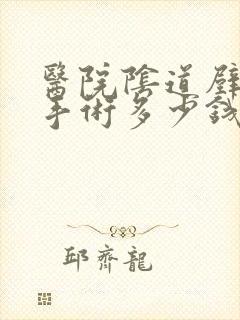 醫院陰道壁
手術多少錢
邱齊龍